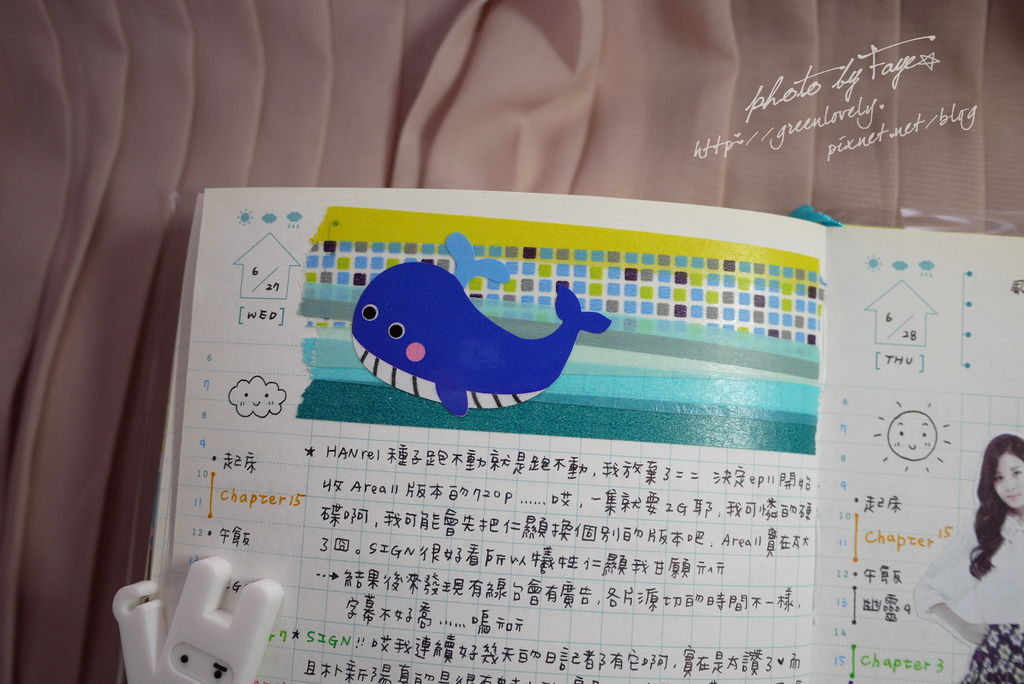 photo by Faye
http://greenlovely.
pixnet.net/blog
6/27
[WED]
6
7
8
9
•起床
10
Chapter 15
11
12 •午飯
★ HANrel 種子跑不動就是跑不動，我放棄了== 決定ep11開始
收 Area11 版本的720p......哎，一集就要2G耶，我可憐的硬
碟啊，我可能會先把仁顯換個別的版本吧，Area11實在太大
了囧。SIGN很好看所以犧牲仁顯我甘願示示
--→結果後來發現有線台會有廣告，各片源切的時間不一樣，
字幕不好喬......嗚示示
★ SIGN!! 哎我連續好幾天的日記都有它啊，實在是太讚了♥而
且朴新陽真的是很有
6/28
[THU]
6
7
8
9
•起床
10
Chapter 15
11
12 •午飯
13
幽靈9
14
15 Chapter 3